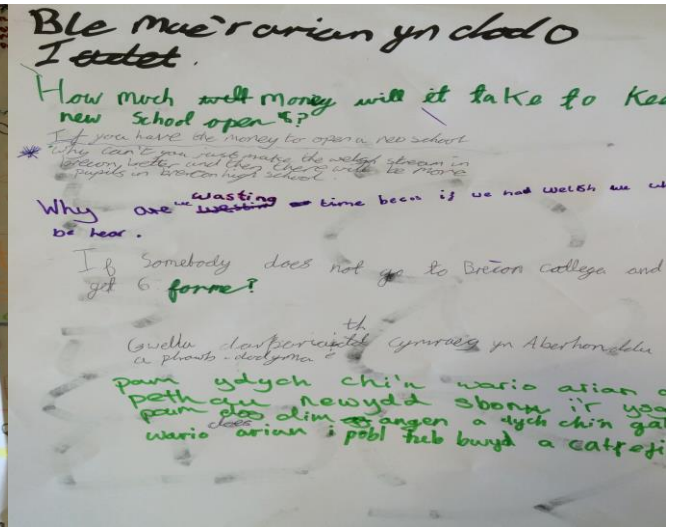 Ble mae'r arian yn dod o
I
How much money will it take to Kee
new School open?
If you have the money to open a new school
Why can't you just make the welsh stream in
brecon better and then there will be more
pupils in brecon high school.
Why are we wasting time becos if we had welsh we
be hear.
If Somebody does not go to Brecon College and
get 6 forme?
Gwella darpariaeth cymraeg yn Aberhonddu
a phrawb-dodyma
pam ydych chi'n wario arian
pethau newydd sbonn i'r
pam does dim angen a dych chi'n
wario arian i pobl heb bwyd a